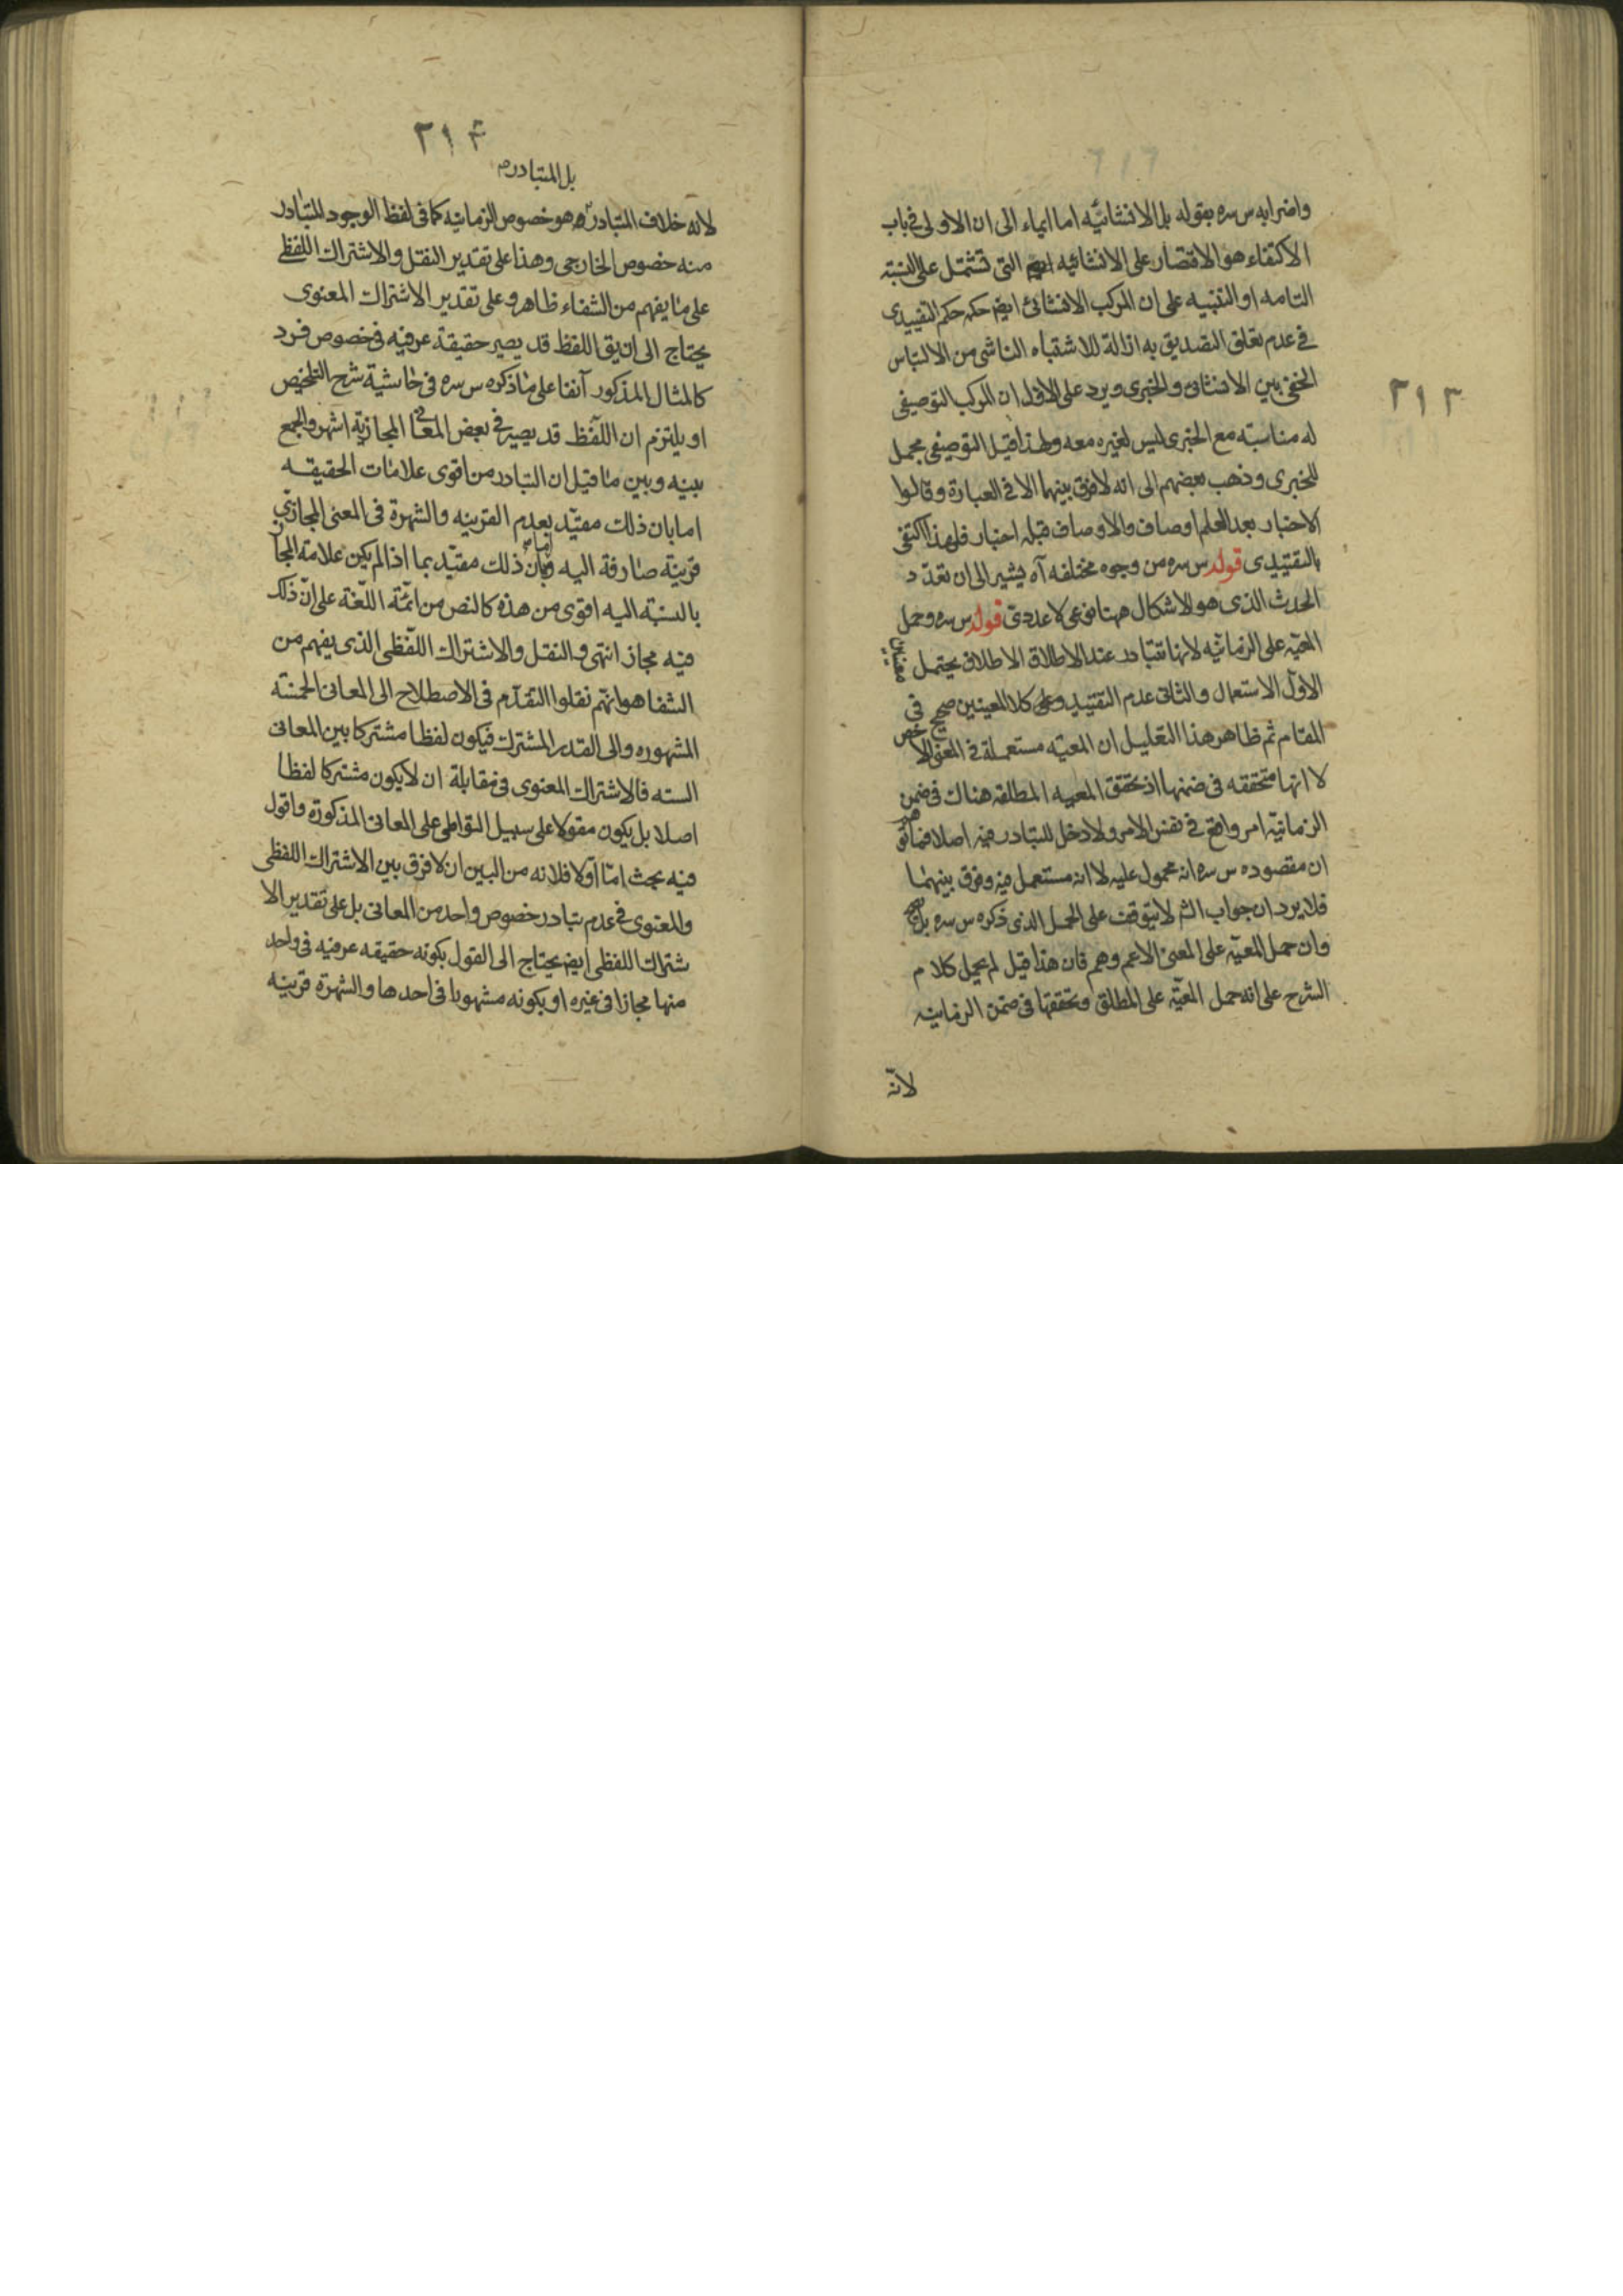 ٢١٣
واضرابه س سره بقوله بل الانشائيّه اما ايماء الى ان الاولى فى باب
الاكتفاء هو الاقتصار على الانشائيه التى تشتمل على النسبته
التامه او التنبيه على ان المركب الانشائى ايضا حكمه حكم التقييدى
فى عدم تعلق التصديق به ازالة للاشتباه الناشى من الالتباس
الخفى بين الانشائى والخبرى ويرد على الاول ان المركب التوصيفى
له مناسبته مع الخبرى ليس لغيره معه ولهذا قيل التوصيفى مجمل
للخبرى وذهب بعضهم الى انه لا فرق بينهما الا فى العبارة وقالوا
الاخبار بعد العلم اوصاف والاوصاف قبله اخبار فلهذا اكتفى
بالتقييدى قوله س سره من وجوه مختلفه آه يشير الى ان تعدّد
الحدث الذى هو الاشكال ههنا نوعى لا عددى قوله س سره وحمل
المعيّه على الزمانيّه لانها تتبادر عند الاطلاق الاطلاق يحتمل معنيين
الاول الاستعمال والثانى عدم التقييد وعلى كلا المعنيين صحيح فى
المقام ثم ظاهر هذا التعليل ان المعيّه مستعملة فى المعنى الاخص
لا انها متحققه فى ضمنها اذ تحقق المعيه المطلقه هناك فى ضمن
الزمانيّه امر واقع فى نفس الامر ولا دخل للتبادر فيه اصلا فما
ان مقصوده س سره انه محمول عليه لا انه مستعمل فيه وفرق بينهما
فلا يرد ان جواب الشم لا يتوقف على الحمل الذى ذكره س سره بل
وان حمل المعيّه على المعنى الاعم وهم فان هذا قيل لم يحمل كلام
الشرح على انه حمل المعيّه على المطلق وتحققها فى ضمن الزمانيه
لانّه
٢١۴
بل المتبادر
لانه خلاف المتبادر هو خصوص الزمانيه كما فى لفظ الوجود المتبادر
منه خصوص الخارجى وهذا على تقدير النقل والاشتراك اللفظى
على ما يفهم من الشفاء ظاهر وعلى تقدير الاشتراك المعنوى
يحتاج الى ان يق اللفظ قد يصير حقيقة عرفيه فى خصوص فرد
كالمثال المذكور آنفا على ما ذكره س سره فى حاشية شرح التلخيص
او يلتزم ان اللّفظ قد يصير فى بعض المعانى المجازيّه اشهر والجمع
بينه وبين ما قيل ان التبادر من اقوى علامات الحقيقه
اما بان ذلك مقيّد بعدم القرينه والشهرة فى المعنى المجازى
قرينة صارفة اليه واما بان ذلك مقيّد بما اذا لم يكن علامة المجاز
بالنسبته اليه اقوى من هذه كالنص من ائمّة اللّغة على انّ ذلك
فيه مجاز انتهى والنقل والاشتراك اللّفظى الذى يفهم من
الشفا هو انهم نقلوا التقدّم فى الاصطلاح الى المعانى الخمسة
المشهوره والى القدر المشترك فيكون لفظا مشتركا بين المعانى
السته فالاشتراك المعنوى فى مقابلة ان لا يكون مشتركا لفظا
اصلا بل يكون مقولا على سبيل التواطى على المعانى المذكورة واقول
فيه بحث امّا اوّلا فلانه من البين ان لا فرق بين الاشتراك اللفظى
والمعنوى فى عدم تبادر خصوص واحد من المعانى بل على تقدير الا
شتراك اللفظى ايضا يحتاج الى القول بكونه حقيقه عرفيه فى واحد
منها مجازا فى غيره او بكونه مشهورا فى احدها والشهرة قرينه